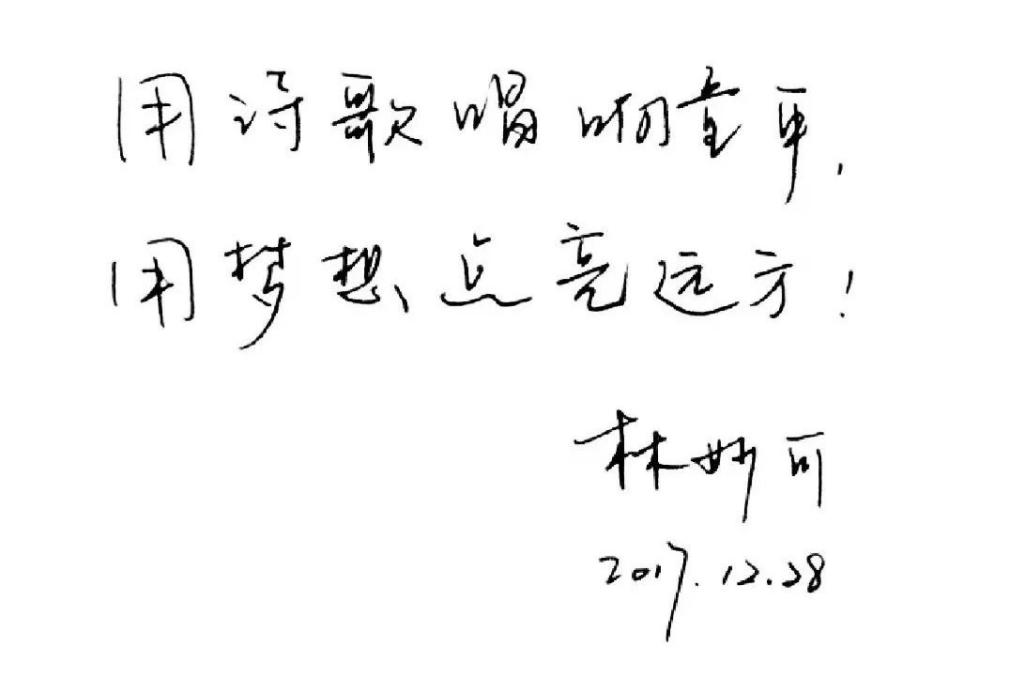 用诗歌唱响童年，
用梦想点亮远方！
林妙可
2017.12.28